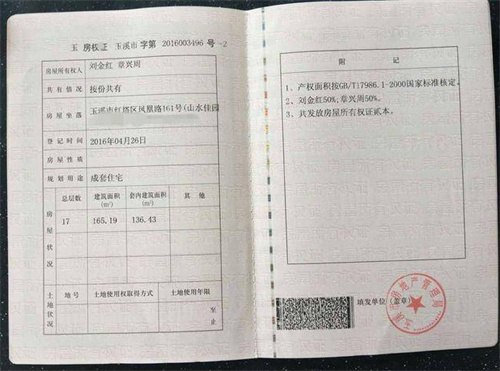 玉 房权证 玉溪市 字第 2016003496 号 -2
房屋所有权人 刘金红 章兴周
共有情况 按份共有
房屋坐落 玉溪市红塔区凤凰路161号(山水佳园
登记时间 2016年04月26日
房屋性质
规划用途 成套住宅
房屋状况 总层数 建筑面积(m²) 套内建筑面积(m²) 其他
17 165.19 136.43
土地状况 地号 土地使用权取得方式 土地使用年限
至 止
附 记
1、产权面积按GB/T17986.1-2000国家标准核定。
2、刘金红50%;章兴周50%。
3、共发放房屋所有权证贰本。
填发单位(盖章)
房地产管理局